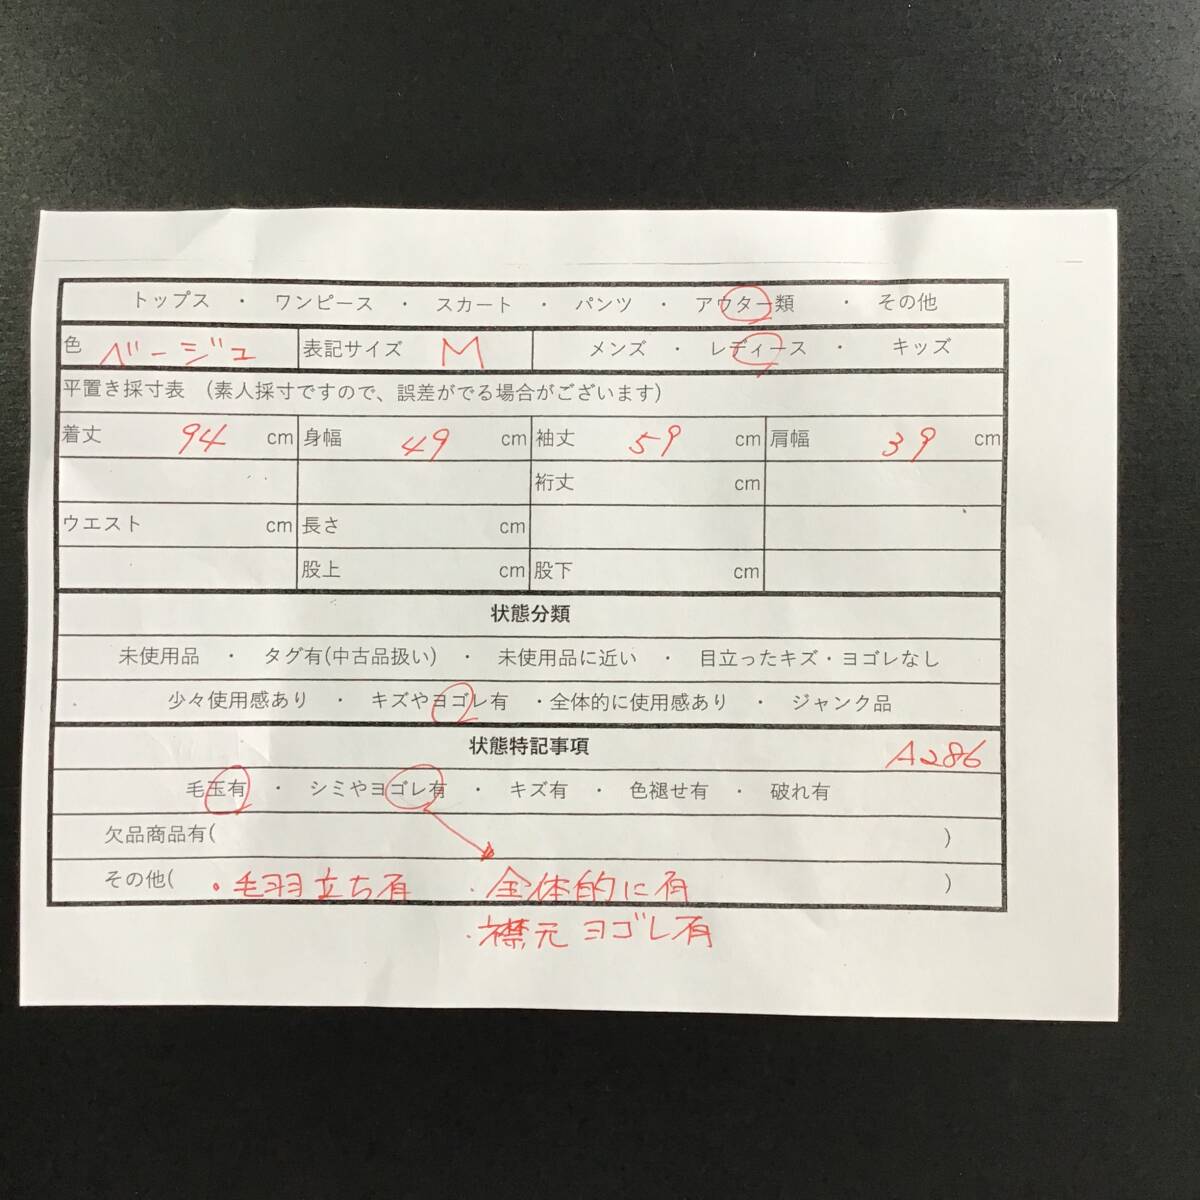 トップス ・ ワンピース ・ スカート ・ パンツ ・ アウター類 ・ その他
色 ベージュ 表記サイズ M メンズ ・ レディース ・ キッズ
平置き採寸表 （素人採寸ですので、誤差がでる場合がございます）
着丈 94 cm 身幅 49 cm 袖丈 59 cm 肩幅 39 cm
裄丈 cm
ウエスト cm 長さ cm
股上 cm 股下 cm
状態分類
未使用品 ・ タグ有(中古品扱い) ・ 未使用品に近い ・ 目立ったキズ・ヨゴレなし
少々使用感あり ・ キズやヨゴレ有 ・全体的に使用感あり ・ ジャンク品
状態特記事項 A286
毛玉有 ・ シミやヨゴレ有 ・ キズ有 ・ 色褪せ有 ・ 破れ有
欠品商品有( )
その他( ・毛羽立ち有 ・全体的に有 )
・襟元ヨゴレ有